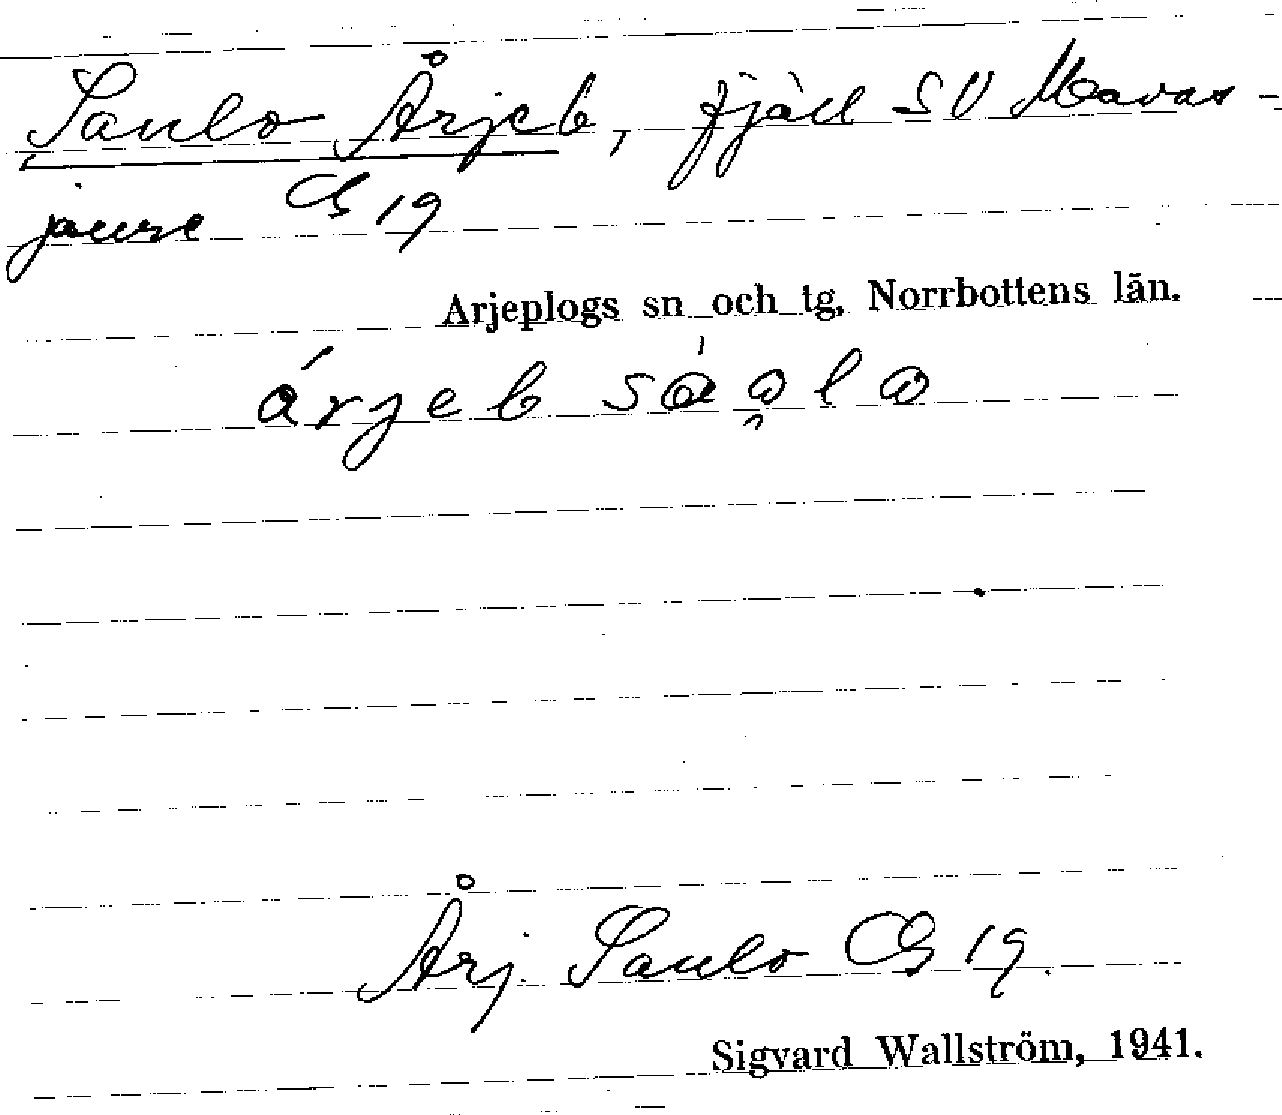 Saulo Årjeb, fjäll SV Mavas-
jaure GS 19
Arjeplogs sn och tg, Norrbottens län.
árjeb
Årj. Saulo GS 19
Sigvard Wallström, 1941.